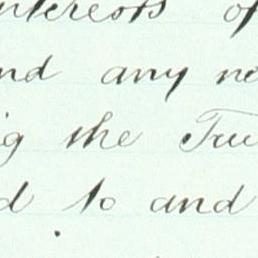 nterests of
nd any ne
g the Tru
d to and